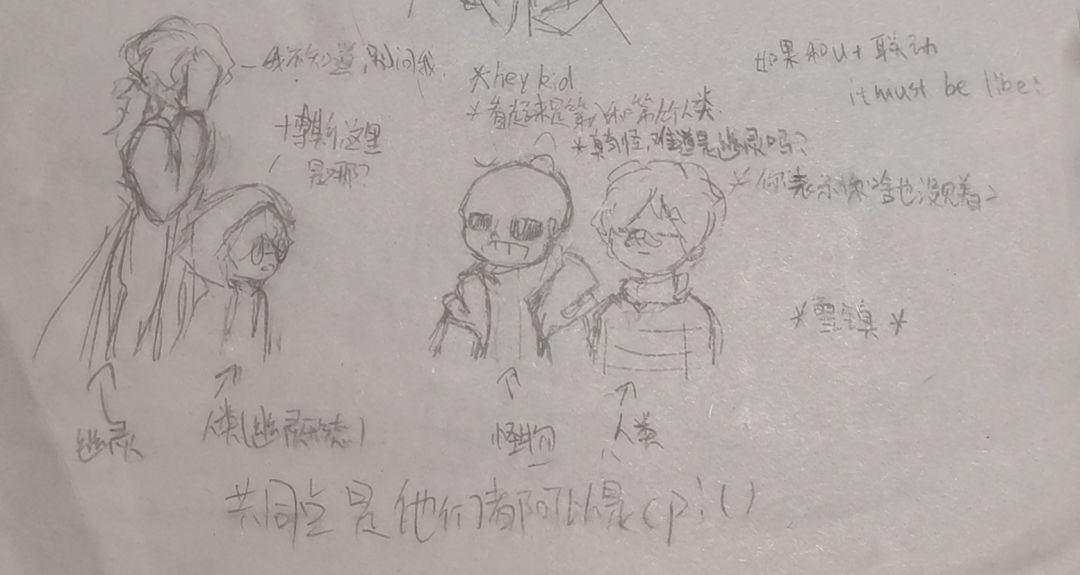 如果和ut联动
it must be like:
—我不知道，别问我.
*hey kid
*看起来是第 和第 个人类
*真奇怪,难道是幽灵吗?
*你表示你啥也没见着~
这里
是哪?
*雪镇*
幽灵
人类(幽灵形态)
怪物
人类
共同点是他们都可以是cp!()